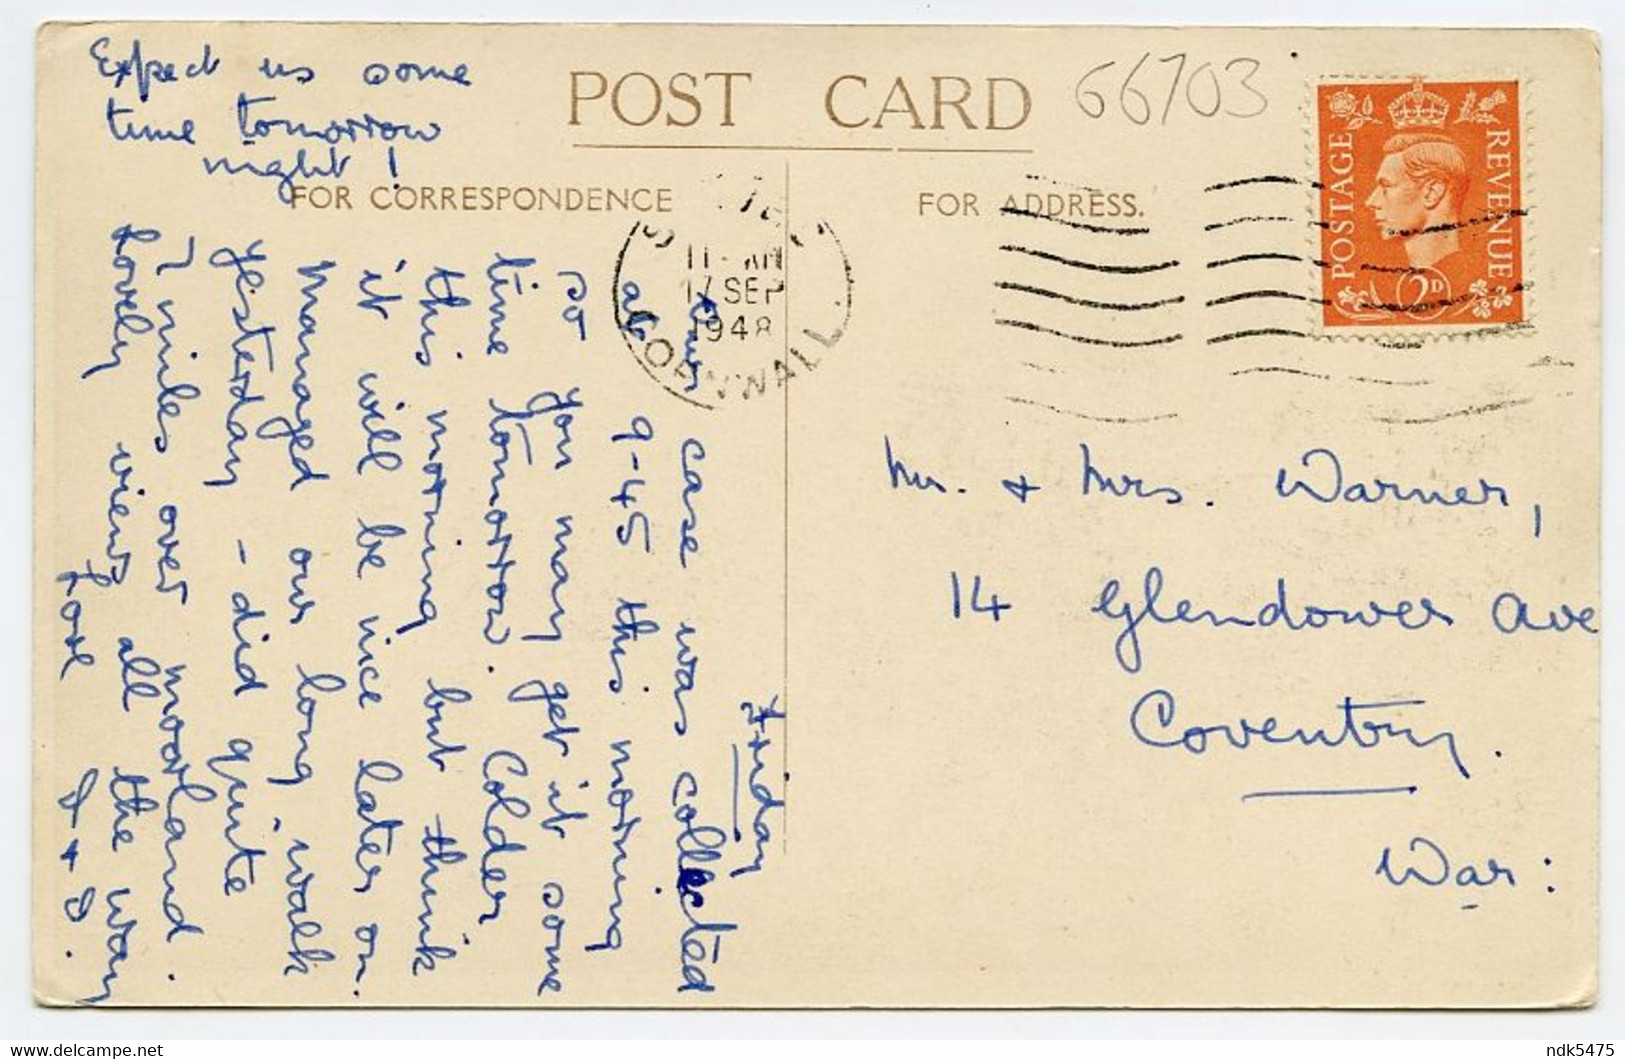 Expect us some
time tomorrow
night!
POST CARD
66703
FOR CORRESPONDENCE
FOR ADDRESS.
POSTAGE
REVENUE
2D
11- AM
17 SEP
1948
CORNWALL
Friday
case was collected
at 9-45 this morning
so you may get it some
time tomorrow. Colder
this morning but think
it will be nice later on.
Managed our long walk
yesterday - did quite
7 miles over moorland.
Lovely views all the way
Love
Mr. & Mrs. Warner,
14 Glendower Ave
Coventry.
War:
ndk5475